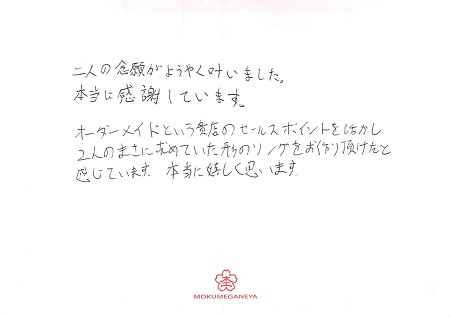 二人の念願がようやく叶いました。
本当に感謝しています。
オーダーメイドという貴店のセールスポイントを活かし
2人のまさに求めていた形のリングをお作り頂けたと
感じています。本当に嬉しく思います。
MOKUMEGANEYA